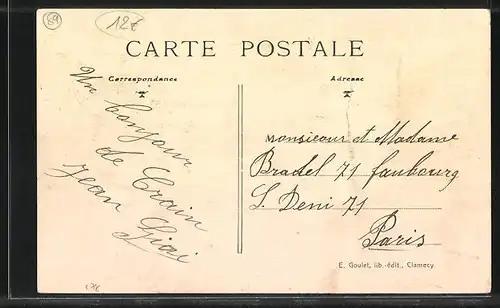 89
12€
CARTE POSTALE
Correspondance
Adresse
Un bonjour
de Crain
Jean
Monsieur et Madame
Bradel 71 faubourg
S. Deni 71
Paris
E. Goulet, lib.-édit., Clamecy